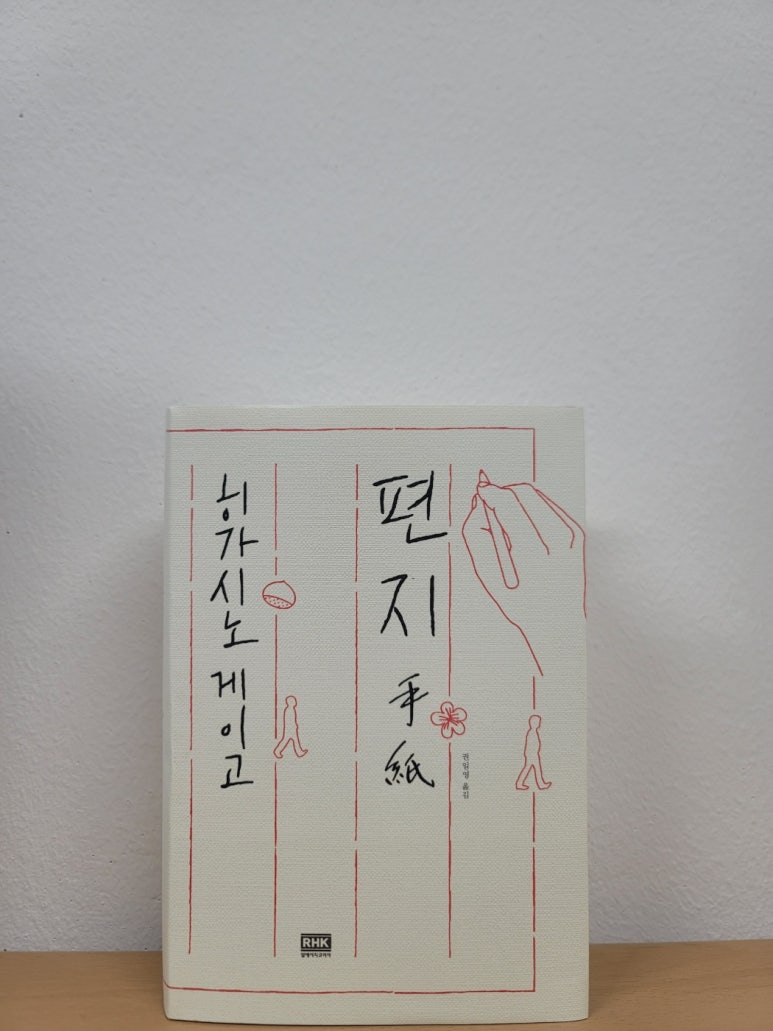 편지
手紙
권일영 옮김
히가시노 게이고
RHK
알에이치코리아